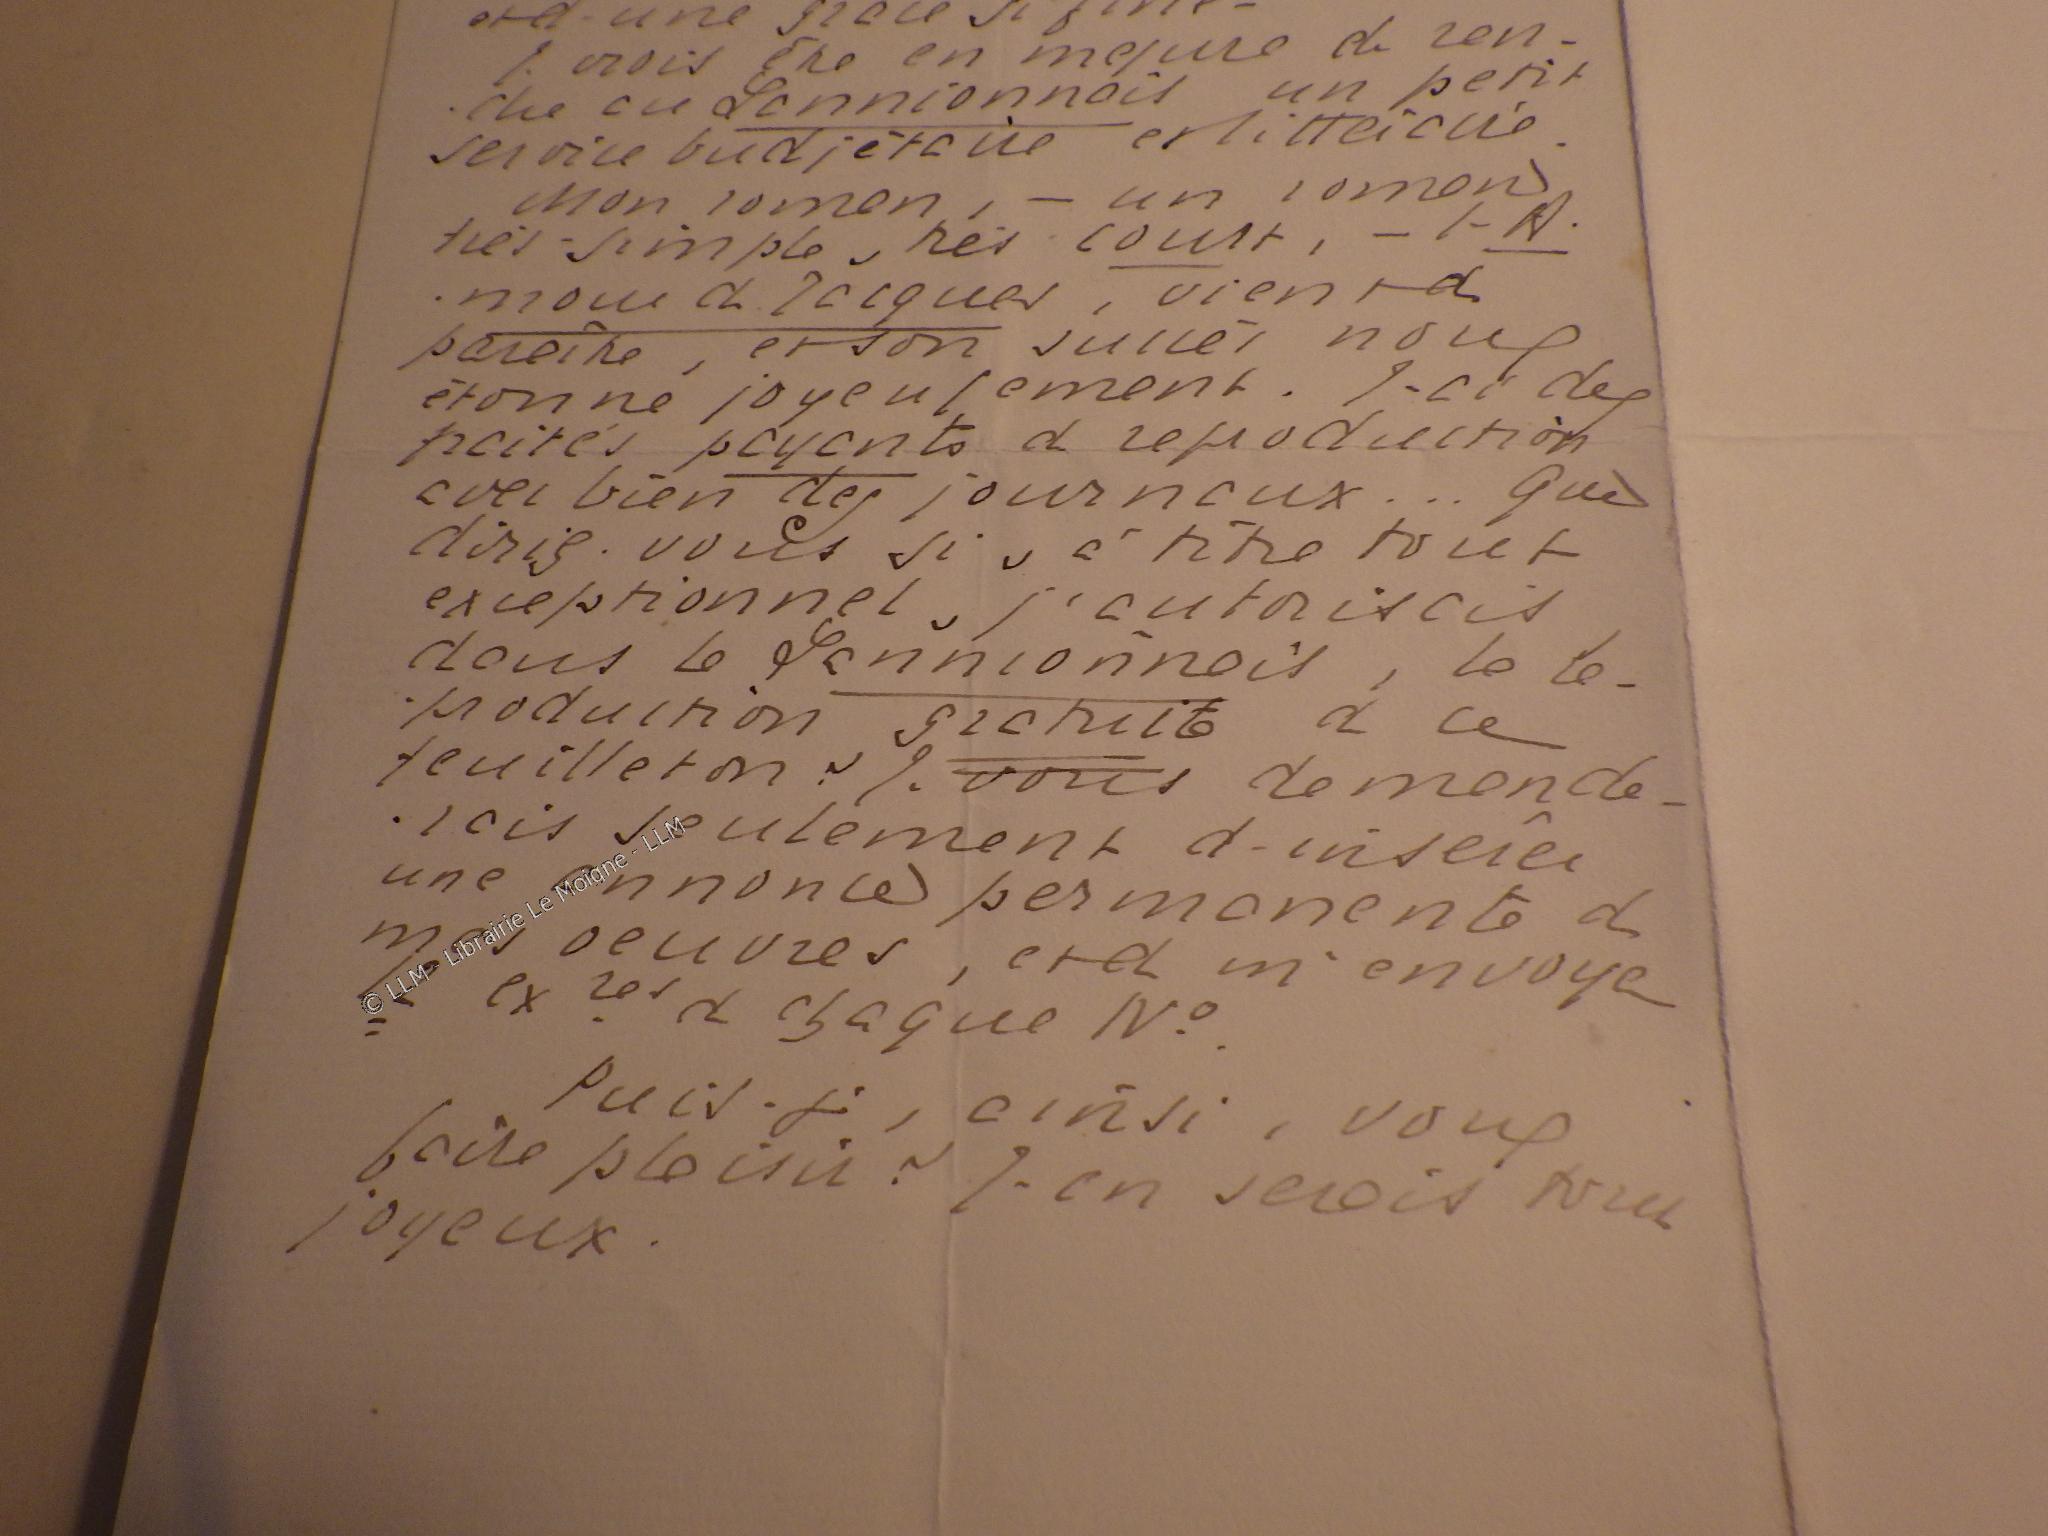 et d'une grâce si fine.
Je crois être en mesure de ren-
-dre au Lannionnais un petit
service budjétaire et littéraire.
Mon roman, — un roman
très-simple, très court, — l'A-
-mour de Jacques, vient de
paraître, et son succès nous
étonne joyeusement. J'ai des
traités payants de reproduction
avec bien des journaux... Que
diriez-vous si, à titre tout
exceptionnel, j'autorisais
dans le Lannionnais, la re-
-production gratuite de ce
feuilleton ? Je vous demande-
-rais seulement d'insérer
une annonce permanente de
mes oeuvres, et de m'envoyer
exres de chaque No.
Puis-je, ainsi, vous
faire plaisir ? J'en serais tout
joyeux.
© LLM - Librairie Le Moigne - LLM